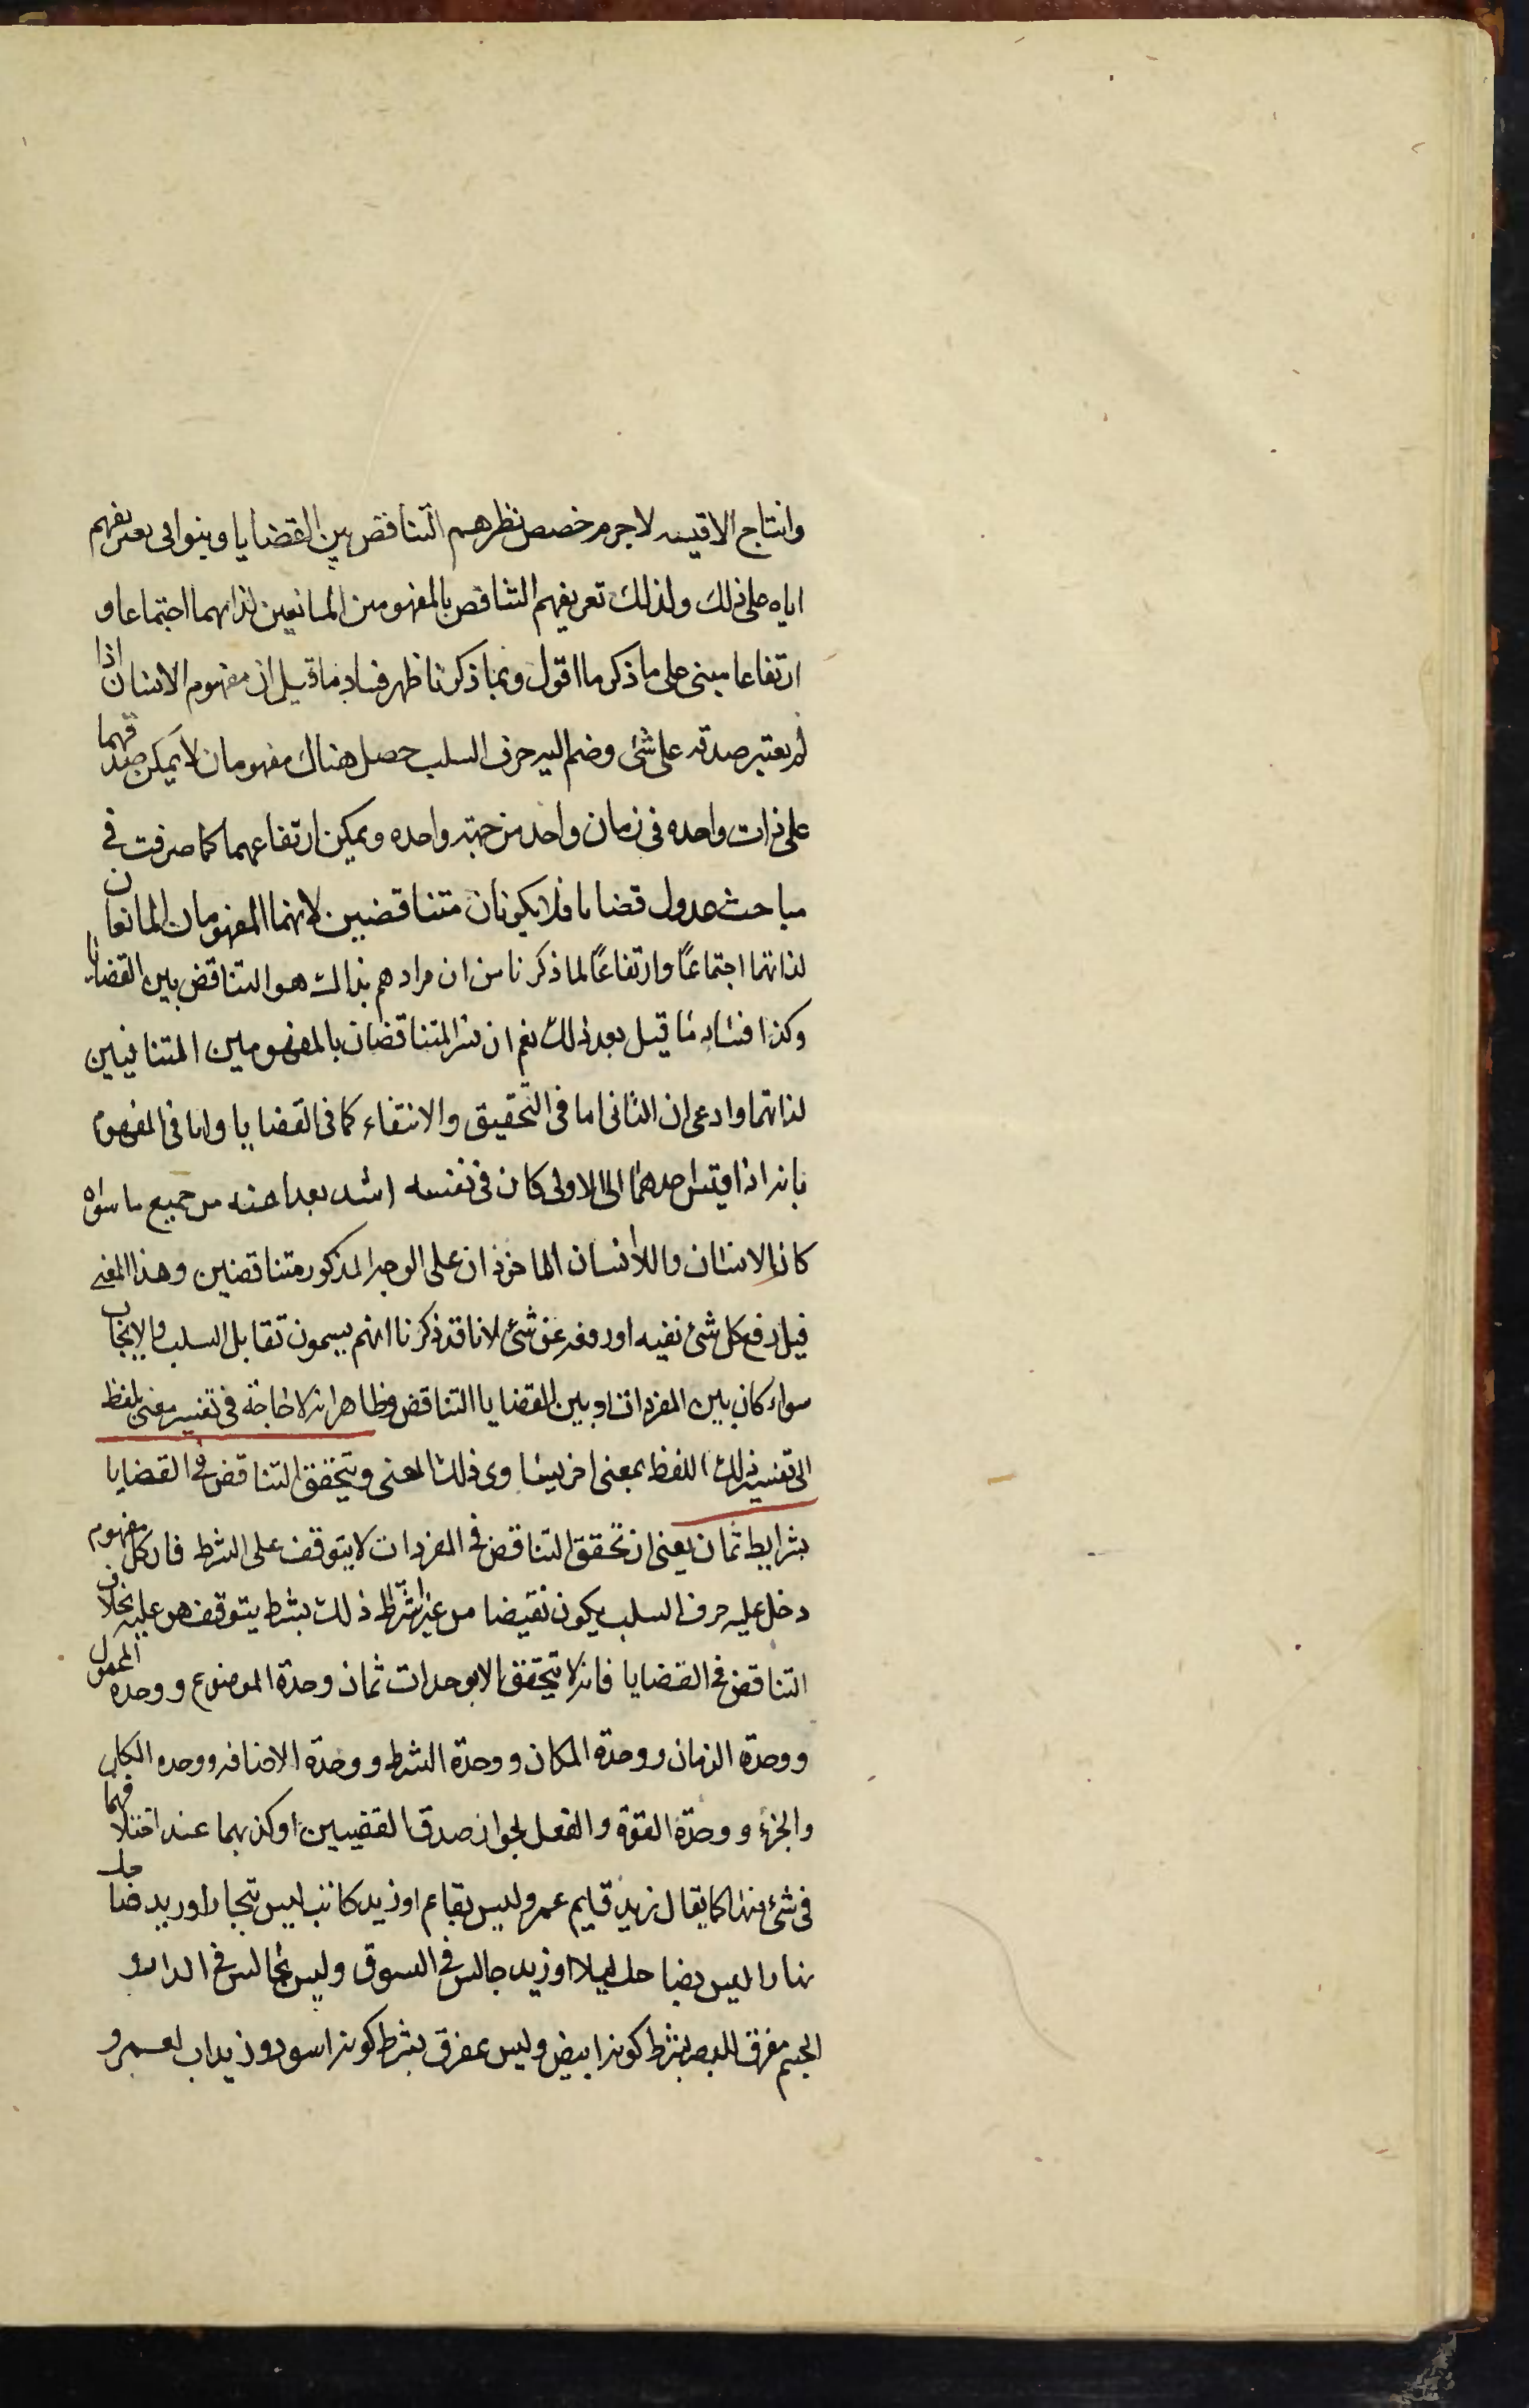 وانتاج الاقيسه لاجرم خصص نظرهم التناقض بين القضايا وبنوا في تعريفهم
اياه على ذلك ولذلك تعريفهم التناقض بالمفهومين المانعين لذاتهما اجتماعا و
ارتفاعا مبنى على ما ذكر ما اقول وبما ذكرنا ظهر فساد ما قيل ان مفهوم الانسان اذا
لم يعتبر صدقه على شئ وضم اليه حرف السلب حصل هناك مفهومان لا يمكن صدقهما
على ذات واحده فى زمان واحد من جهة واحده ويمكن ارتفاعهما كما عرفت فى
مباحث عدول قضايا فلا يكونان متناقضين لانهما المفهومان المانعان
لذاتهما اجتماعًا وارتفاعًا لما ذكرنا من ان مرادهم بذالك هو التناقض بين القضايا
وكذا فساد ما قيل بعد ذلك نعم ان فسر المتناقضان بالمفهومين المتنافيين
لذاتهما وادعى ان الثانى اما فى التحقيق والانتفاء كما فى القضايا واما فى المفهوم
بانه اذا قيس احدهما الى الاولى كان فى نفسه اشد بعدا عنه من جميع ما سواه
كان الانسان واللاانسان الماخوذان على الوجه المذكور متناقضين وهذا المعنى
قيل رفع كل شئ نفيه او رفعه عن شئ لانا قد ذكرنا انهم يسمون تقابل السلب والايجاب
سواء كان بين المفردات او بين القضايا التناقض وظاهر انه لا حاجة فى تفسير معنى بلفظ
الى تفسير ذلك اللفظ بمعنى اخر يساوى ذلك المعنى ويتحقق التناقض فى القضايا
بشرايط ثمان يعنى ان تحقق التناقض فى المفردات لا يتوقف على الشرط فان كل مفهوم
دخل عليه حرف السلب يكون نقيضا من غير اشتراط ذلك بشرط يتوقف هو عليه بخلاف
التناقض فى القضايا فانه لا يتحقق الا بوحدات ثمان وحدة الموضوع ووحدة المحمول
ووحدة الزمان ووحدة المكان ووحدة الشرط ووحدة الاضافه ووحده الكل
والجزء ووحدة القوة والفعل لجواز صدق القضيتين او كذبهما عند اختلافهما
فى شئ منها كما يقال زيد قايم عمرو ليس بقايم او زيد كاتب ليس بنجار او زيد ضاحك
نهارا ليس بضاحك ليلا او زيد جالس فى السوق وليس بجالس فى الدار
الجسم مفرق للبصر بشرط كونه ابيض وليس بمفرق بشرط كونه اسود وزيد اب لعمرو